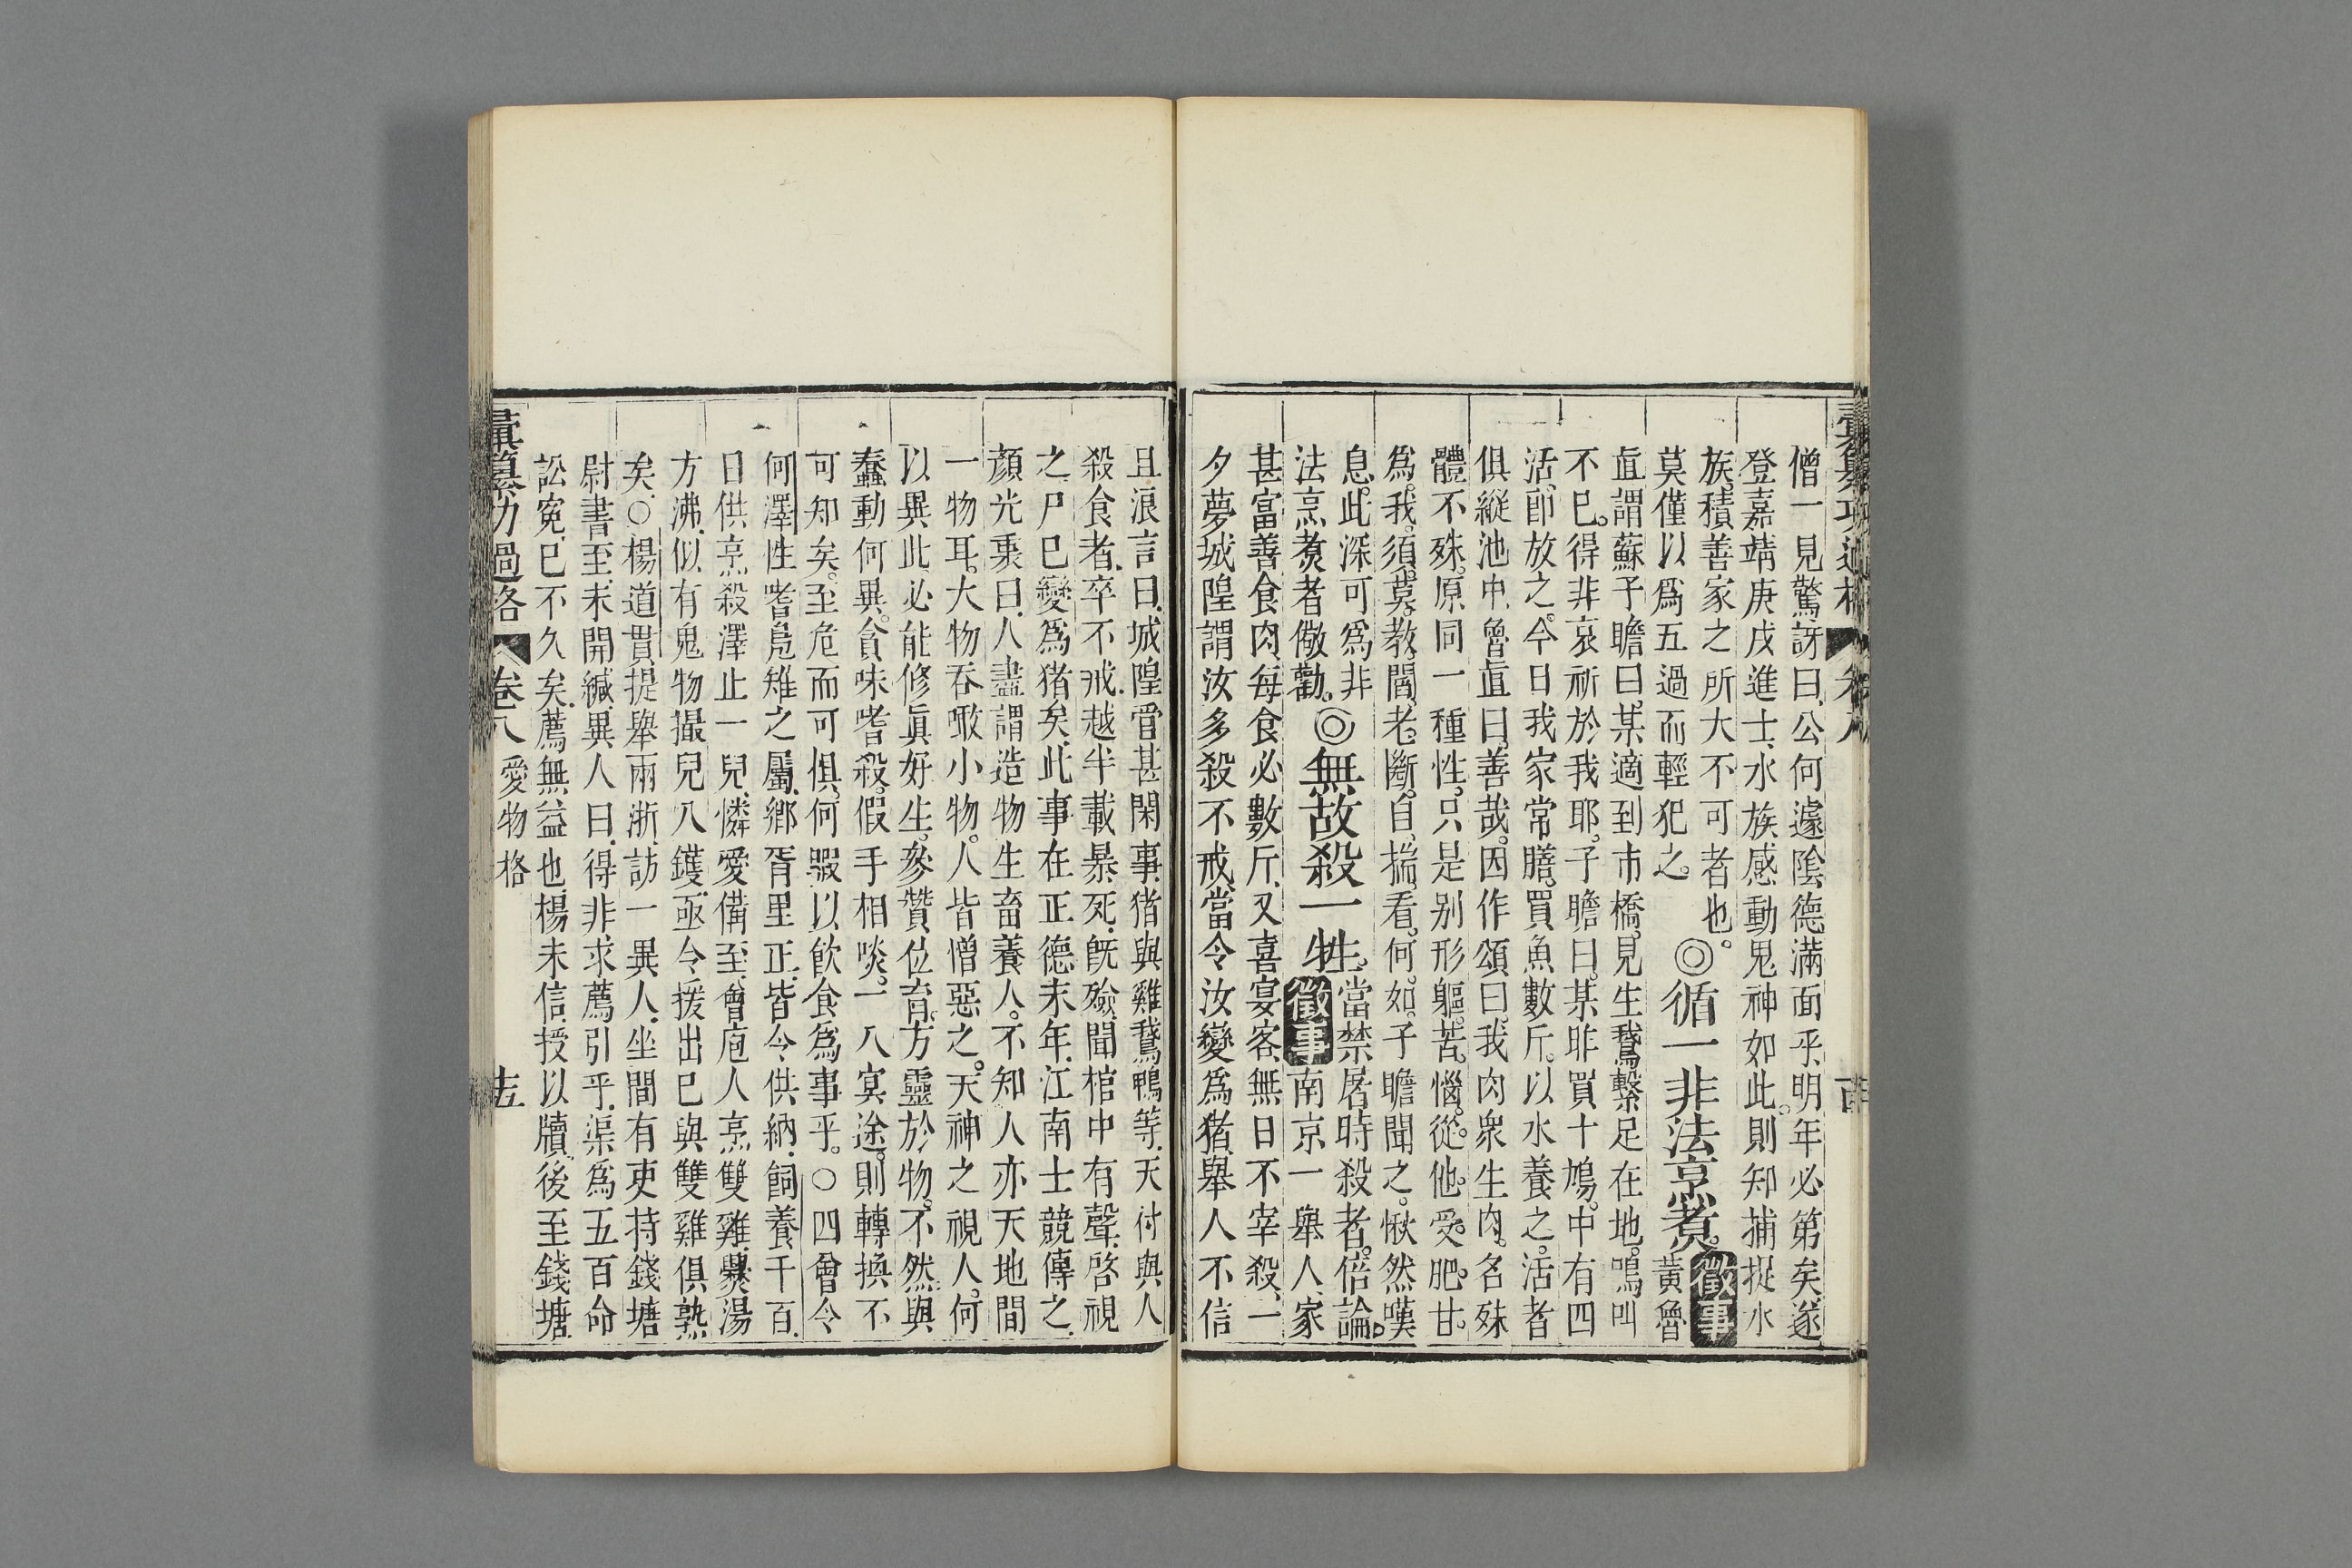 彙纂功過格 卷八
僧一見驚訝曰公何遽陰德滿面乎明年必第矣遂
登嘉靖庚戌進士水族感動鬼神如此則知捕捉水
族積善家之所大不可者也。◎循一非法烹煑。徵事
莫僅以爲五過而輕犯之。黃魯
直謂蘇子瞻曰某適到市橋見生鵞繫足在地。鳴叫
不已。得非哀祈於我耶。子瞻曰某昨買十鳩。中有四
活卽放之。今日我家常膳買魚數斤。以水養之。活者
俱縱池中魯直曰善哉。因作頌曰我肉衆生肉。名殊
體不殊。原同一種性。只是别形軀。苦惱從他受。肥甘
爲我須。莫教閻老斷。自揣看何如。子瞻聞之。愀然嘆
息。此深可爲非
法烹煑者儆勸。◎無故殺一牲。當禁屠時殺者。倍論。徵事南京一舉人家
甚富善食肉每食必數斤又喜宴客無日不宰殺一
夕夢城隍謂汝多殺不戒當令汝變爲猪舉人不信
且浪言曰城隍管甚閑事猪與雞鵞鴨等天付與人
殺食者卒不戒越半載暴死旣殮聞棺中有聲啓視
之尸已變爲猪矣此事在正德末年江南士競傳之
顔光衷曰人盡謂造物生畜養人。不知人亦天地間
一物耳。大物吞噉小物。人皆憎惡之。天神之視人何
以異此必能修眞好生。參贊位育。方靈於物。不然與
蠢動何異。貪味嗜殺。假手相啖。一入冥途。則轉換不
可知矣。至危而可俱。何㬅以飲食爲事乎。○四會令
何澤性嗜鳧雉之屬鄉胥里正皆令供納飼養千百
日供烹殺澤止一兒憐愛備至會庖人烹雙雞爨湯
方沸似有鬼物撮兒入鑊亟令援出已與雙雞俱熟
矣○楊道貫提舉兩浙訪一異人坐間有吏持錢塘
尉書至未開緘異人曰得非求薦引乎渠爲五百命
訟寃已不久矣薦無益也楊未信授以牘後至錢塘
彙纂功過格 卷八 愛物格 十五